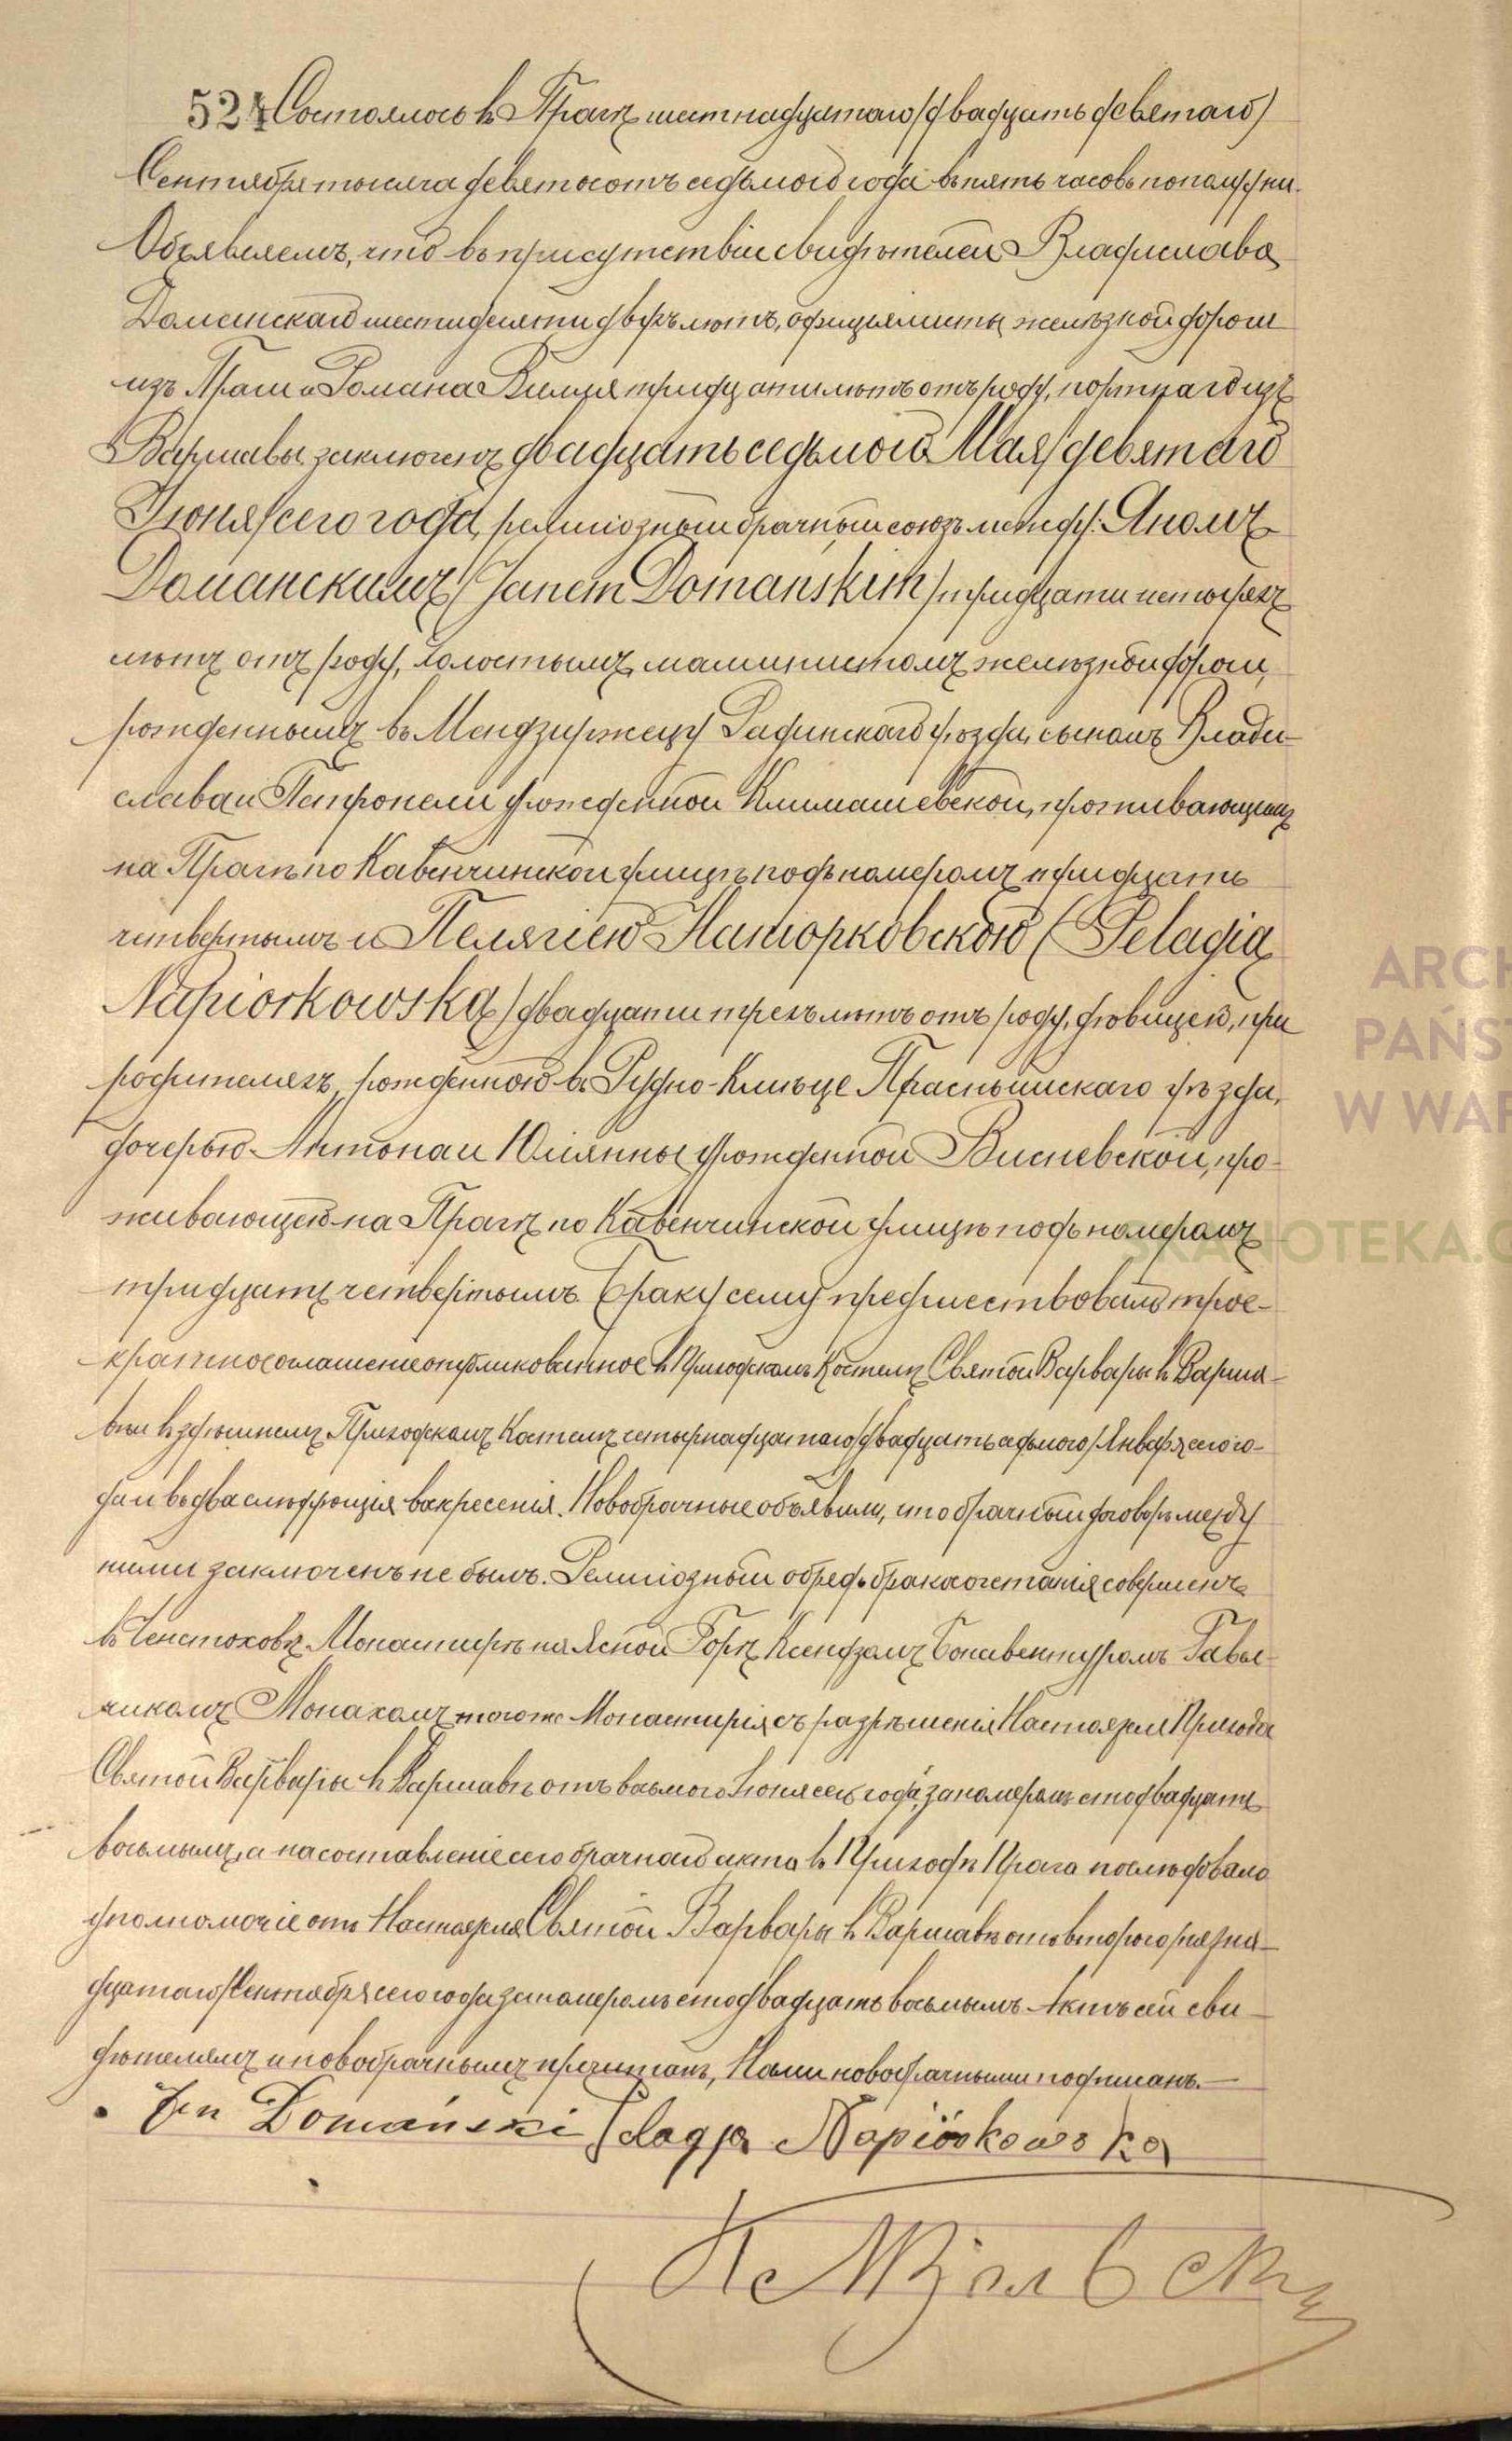 524 Состоялось в Праге шестнадцатаго /двадцать девятаго/
Сентября тысяча девятьсотъ седьмого года въ пять часовъ пополудни.
Объявляемъ, что въ присутствіи свидѣтелей Владислава
Доманскаго шестидесяти двухъ лѣтъ, оффиціялиста желѣзной дороги
изъ Праги и Романа тридцати лѣтъ отъ роду, портнаго изъ
Варшавы заключенъ двадцать седьмого Мая /девятаго
Іюня/ сего года, религіозный брачный союзъ между: Яномъ
Доманскимъ (Janem Domańskim) тридцати четырехъ
лѣтъ отъ роду, холостымъ, машинистомъ желѣзной дороги,
рожденнымъ въ Мендзиржецу Радинскаго уѣзда, сыномъ Влади-
слава и Петронели урожденной Климашевской, проживающимъ
на Прагѣ по Кавенчинской улицѣ подъ номеромъ тридцать
четвертымъ и Пелягіею Напіорковскою (Pelagią
Napiorkowską) двадцати трехъ лѣтъ отъ роду, дѣвицей, при
родителяхъ, рожденною въ Рудно-Кмѣце Праснышскаго уѣзда,
дочерью Антона и Юліянны урожденной Висневской, про-
живающей на Прагѣ по Кавенчинской улицѣ подъ номеромъ
тридцать четвертымъ. Браку сему предшествовало трое-
кратное оглашеніе опубликованное в Приходскомъ Костелѣ Святой Варвары в Варша-
вѣ и в здѣшнемъ Приходскомъ Костелѣ четырнадцатаго /двадцать седьмого/ Января сего го-
да и въ два слѣдующія воскресенія. Новобрачные объявили, что брачный договоръ между
ними заключенъ не былъ. Религіозный обрядъ бракосочетанія совершенъ
въ Ченстоховѣ Монастирѣ на Ясной Горѣ Ксендзомъ Бонавентуромъ Гавел-
чикомъ Монахомъ тогоже Монастирія съ разрѣшенія Настоятеля Прихода
Святой Варвары в Варшавѣ отъ восьмого Іюня сего года, за номеромъ сто двадцать
восьмымъ, а на составленіе сего брачнаго акта въ Приходѣ Прага послѣдовало
уполномочіе отъ Настоятеля Святой Варвары в Варшавѣ отъ второго /пятна-
дцатаго/ Сентября сего года за номеромъ сто двадцать восьмымъ. Актъ сей сви-
дѣтелямъ и новобрачнымъ прочитанъ, Нами новобрачными подписанъ.—
Jan Domański Pelagja Napiórkowska
ARCH
PAŃST
W WAR
SKANOTEKA.G